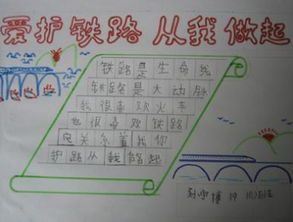 爱护铁路 从我做起
铁路是生命线
铁路是大动脉
我很喜欢火车
也很喜欢铁路
它关系着我你
护路从我做起